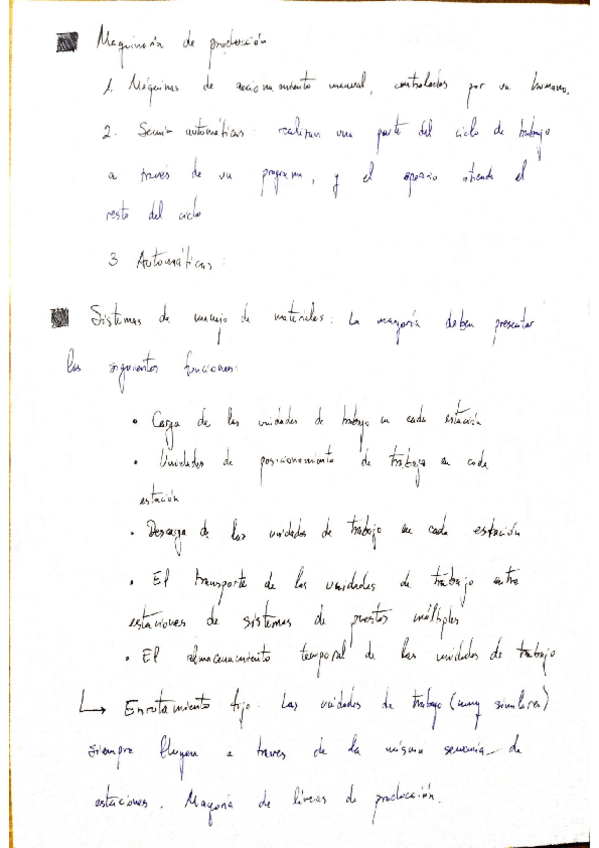 Maquinaria de producción
1. Máquinas de accionamiento manual, controlados por un humano.
2. Semi-automáticas: realizan una parte del ciclo de trabajo
a través de un programa, y el operario atiende el
resto del ciclo
3 Automáticas:
Sistemas de manejo de materiales: La mayoría deben presentar
las siguientes funciones:
• Carga de las unidades de trabajo en cada estación
• Unidades de posicionamiento de trabajo en cada
estación
• Descarga de las unidades de trabajo en cada estación
• El transporte de las unidades de trabajo entre
estaciones de sistemas de puestos múltiples
• El almacenamiento temporal de las unidades de trabajo
↳ Enrutamiento fijo: Las unidades de trabajo (muy similares)
siempre fluyen a traves de la misma de
estaciones. Mayoría de líneas de producción.